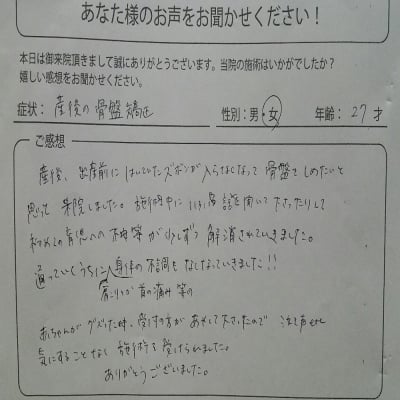 あなた様のお声をお聞かせください!
本日は御来院頂きまして誠にありがとうございます。当院の施術はいかがでしたか?
嬉しい感想をお聞かせください。
症状: 産後の骨盤矯正 性別:男・女 年齢: 27 才
ご感想
産後、出産前にはいていたズボンが入らなくなって骨盤をしめたいと
思って来院しました。施術中にいろいろ話を聞いて下さったりして
初めての育児への不安等が少しずつ解消されていきました。
通っていくうちに身体の不調もなくなっていきました!!
肩こりや首の痛み等の
赤ちゃんがグズった時、受付の方があやして下さったので 泣き声も
気にすることなく施術を受けられました。
ありがとうございました。